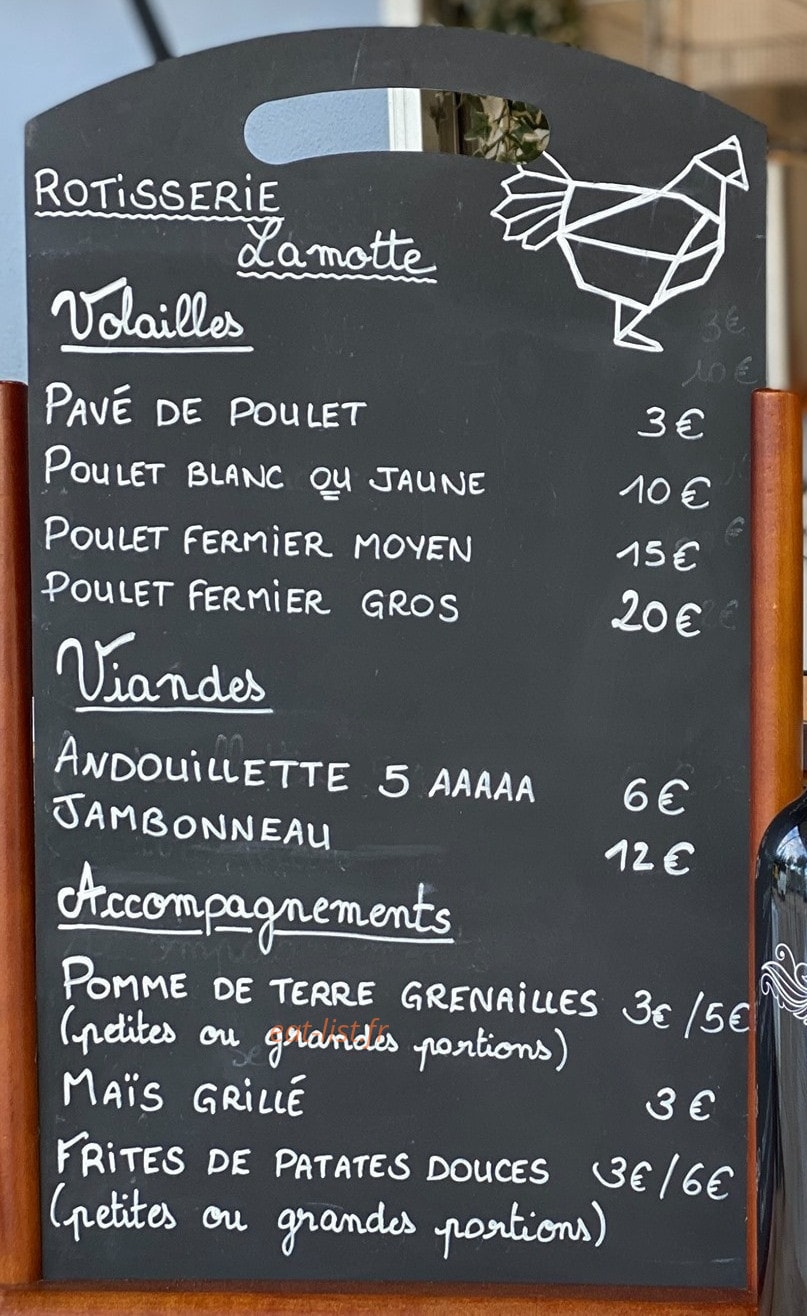 ROTISSERIE
Lamotte
Volailles
PAVÉ DE POULET 3€
POULET BLANC OU JAUNE 10€
POULET FERMIER MOYEN 15€
POULET FERMIER GROS 20€
Viandes
ANDOUILLETTE 5 AAAAA 6€
JAMBONNEAU 12€
Accompagnements
POMME DE TERRE GRENAILLES 3€/5€
(petites ou grandes portions)
eat-list.fr
MAÏS GRILLÉ 3€
FRITES DE PATATES DOUCES 3€/6€
(petites ou grandes portions)